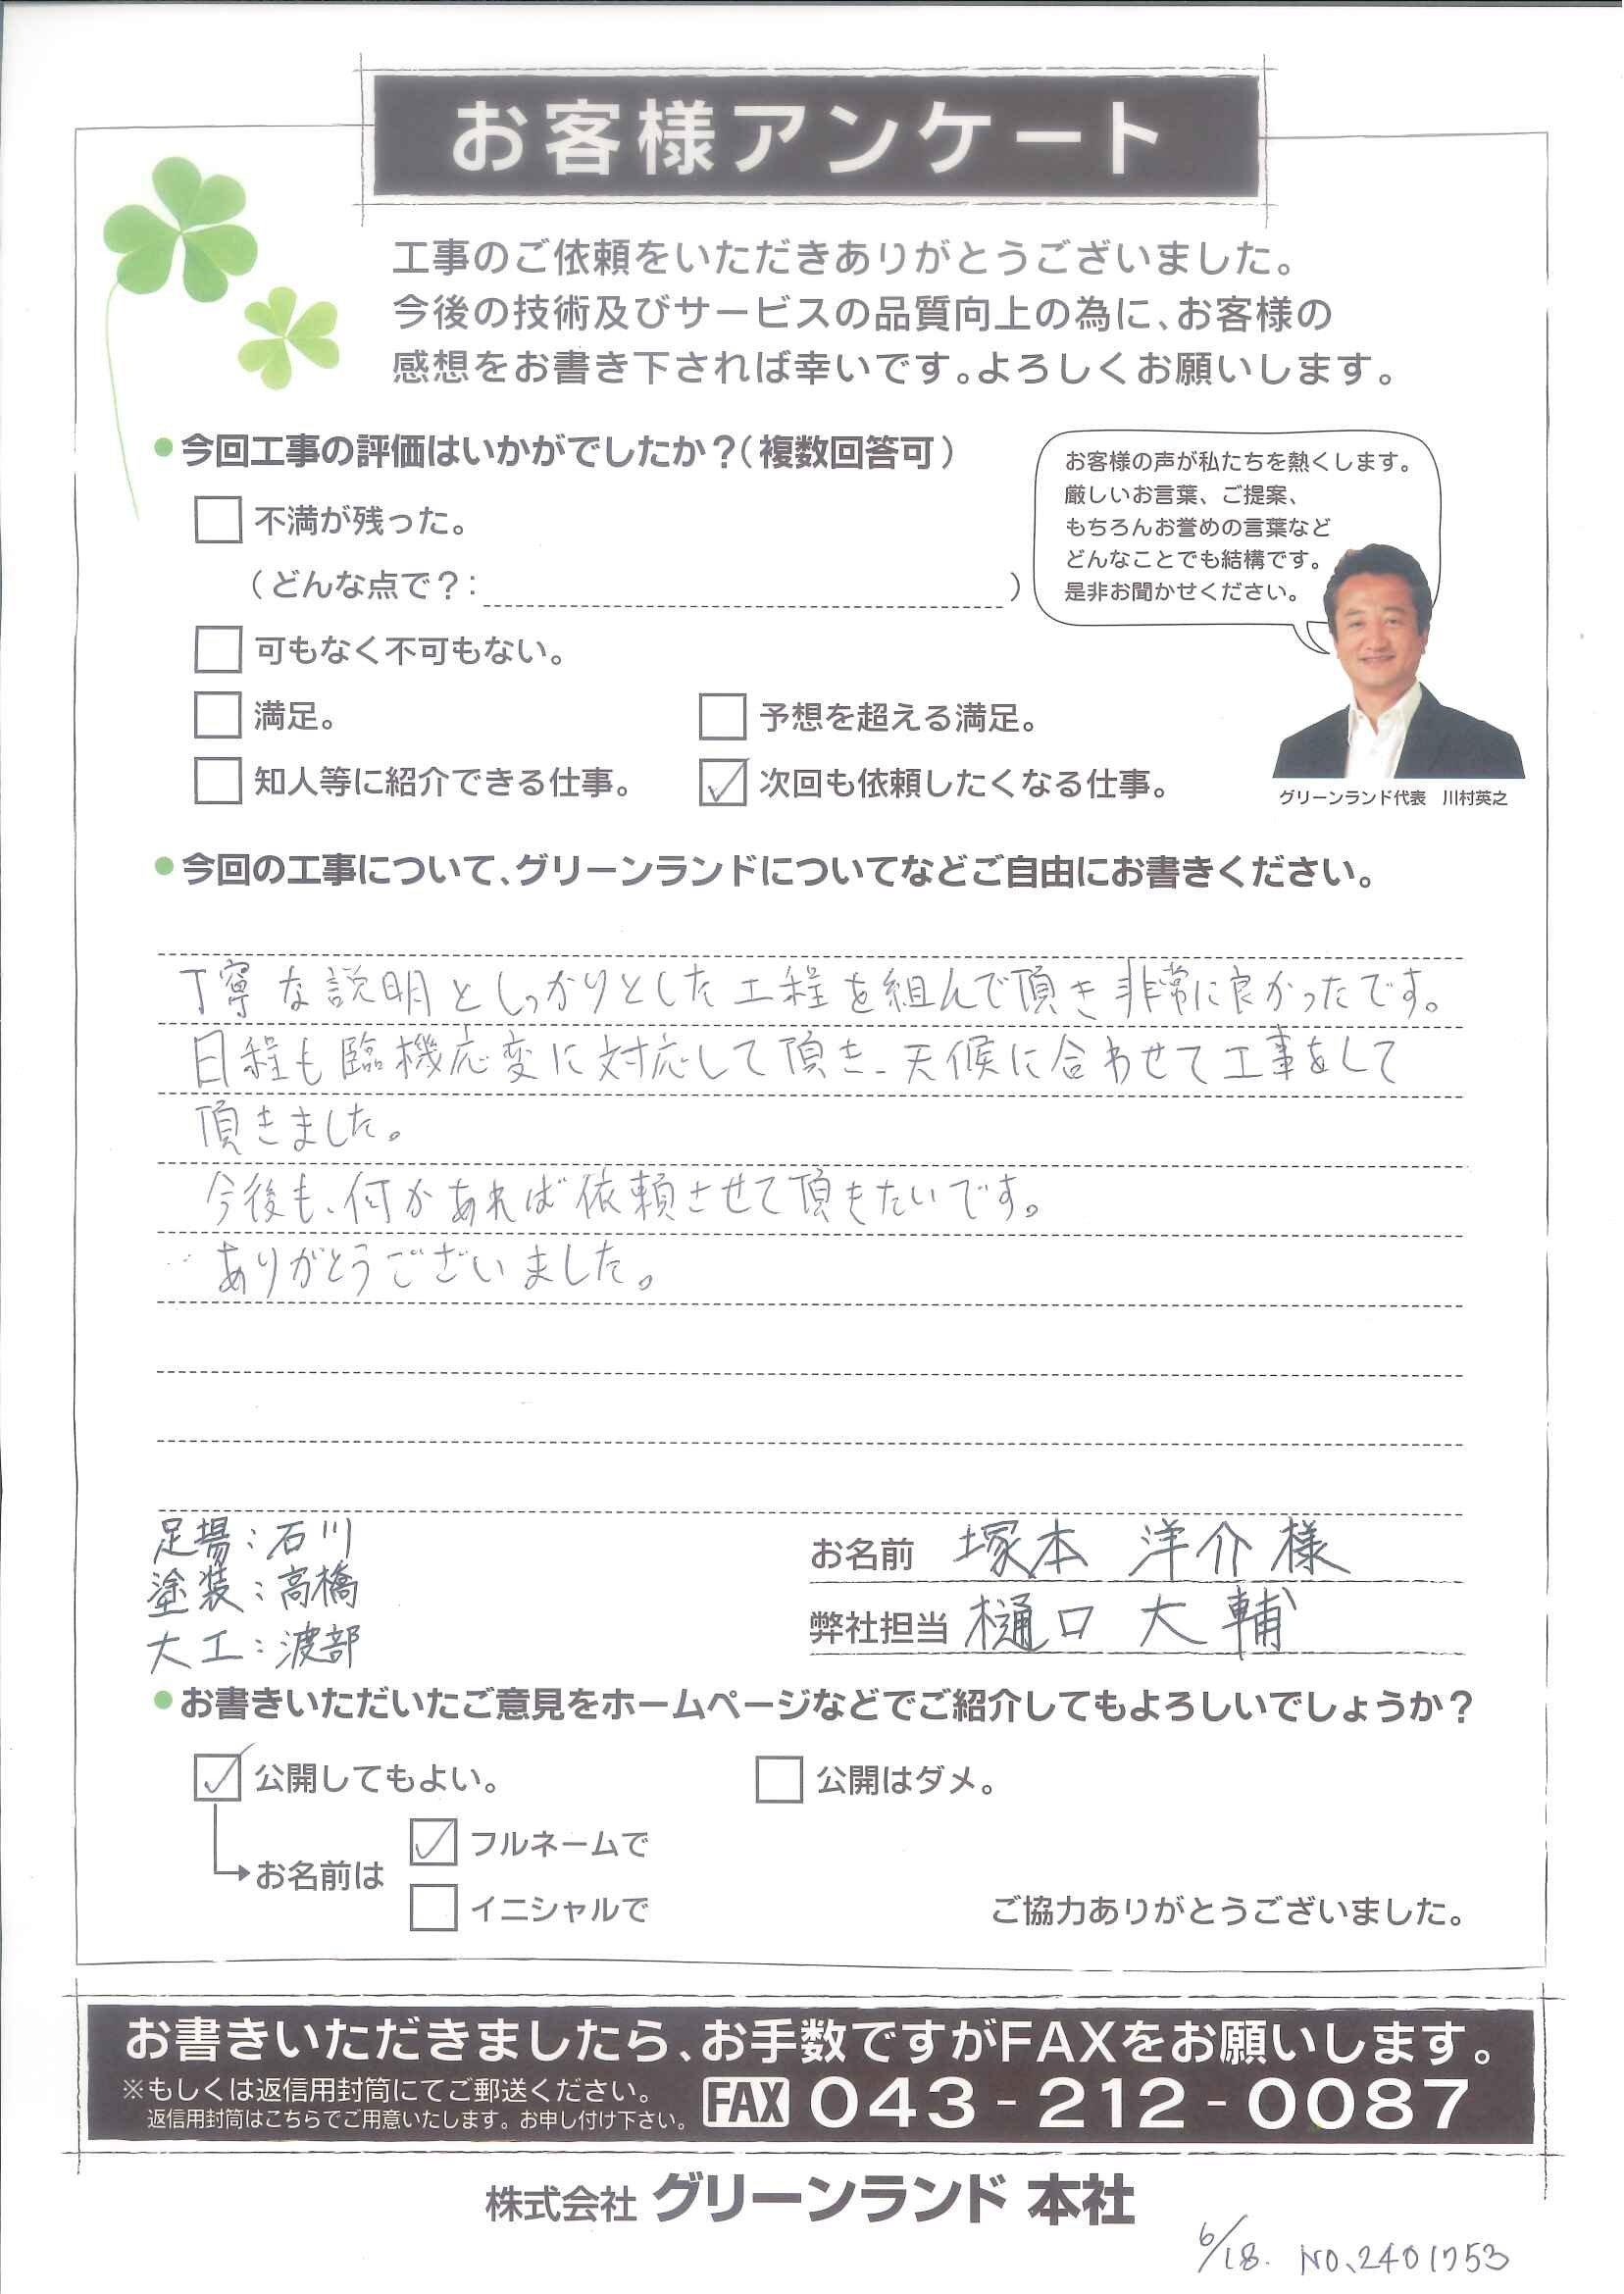 お客様アンケート
工事のご依頼をいただきありがとうございました。
今後の技術及びサービスの品質向上の為に、お客様の
感想をお書き下されば幸いです。よろしくお願いします。
●今回工事の評価はいかがでしたか？（複数回答可）
お客様の声が私たちを熱くします。
厳しいお言葉、ご提案、
もちろんお誉めの言葉など
どんなことでも結構です。
是非お聞かせください。
グリーンランド代表　川村英之
□不満が残った。
（どんな点で？：　　　）
□可もなく不可もない。
□満足。　□予想を超える満足。
□知人等に紹介できる仕事。　☑次回も依頼したくなる仕事。
●今回の工事について、グリーンランドについてなどご自由にお書きください。
丁寧な説明としっかりとした工程を組んで頂き非常に良かったです。
日程も臨機応変に対応して頂き、天候に合わせて工事をして
頂きました。
今後も、何かあれば依頼させて頂きたいです。
ありがとうございました。
足場：石川
塗装：高橋
大工：渡部
お名前　塚本 洋介様
弊社担当　樋口 大輔
●お書きいただいたご意見をホームページなどでご紹介してもよろしいでしょうか？
☑公開してもよい。　□公開はダメ。
お名前は
☑フルネームで
□イニシャルで
ご協力ありがとうございました。
お書きいただきましたら、お手数ですがFAXをお願いします。
※もしくは返信用封筒にてご郵送ください。
返信用封筒はこちらでご用意いたします。お申し付け下さい。
FAX 043-212-0087
株式会社 グリーンランド 本社
6/18. NO.2401753